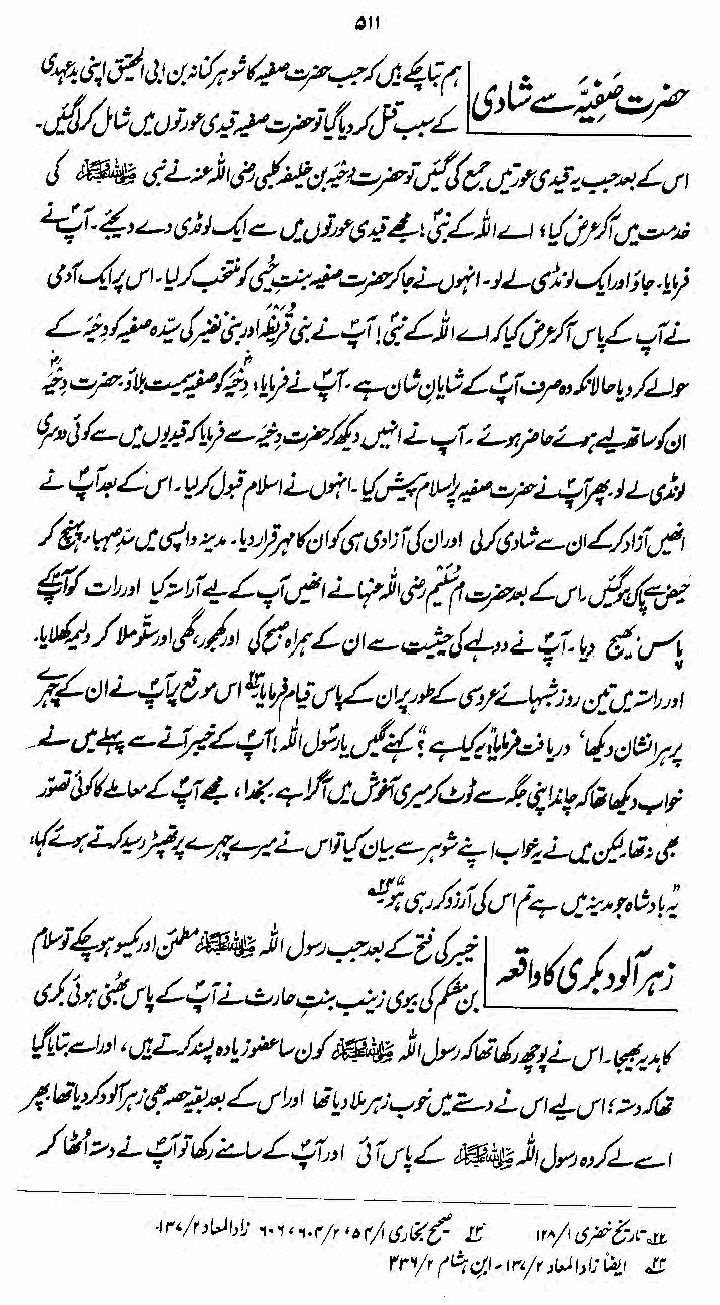 ۵۱۱
حضرت صَفِیَّہ سے شادی
ہم بتا چکے ہیں کہ جب حضرت صفیہ کا شوہر کنانہ بن ابی الحقیق اپنی بدعہدی
کے سبب قتل کر دیا گیا تو حضرت صفیہ قیدی عورتوں میں شامل کر لی گئیں۔
اس کے بعد جب یہ قیدی عورتیں جمع کی گئیں تو حضرت دِحْیَہ بن خلیفہ کلبی رضی اللہ عنہ نے نبی ﷺ کی
خدمت میں آکر عرض کیا؛ اے اللہ کے نبیؐ! مجھے قیدی عورتوں میں سے ایک لونڈی دے دیجئے۔ آپؐ نے
فرمایا۔ جاؤ اور ایک لونڈی لے لو۔ انہوں نے جا کر حضرت صفیہ بنت حُیَی کو منتخب کر لیا۔ اس پر ایک آدمی
نے آپؐ کے پاس آکر عرض کیا کہ اے اللہ کے نبیؐ! آپؐ نے بنی قُریظَہ اور بنی نضیر کی سیّدہ صفیہ کو دِحْیَہ کے
حوالے کر دیا حالانکہ وہ صرف آپؐ کے شایانِ شان ہے۔ آپؐ نے فرمایا؛ دِحْیَہؓ کو صفیہ سمیت بلاؤ۔ حضرت دِحْیَہؓ
ان کو ساتھ لیے ہوئے حاضر ہوئے۔ آپؐ نے انہیں دیکھ کر حضرت دِحْیَہ سے فرمایا کہ قیدیوں میں سے کوئی دوسری
لونڈی لے لو۔ پھر آپؐ نے حضرت صفیہ پر اسلام پیش کیا۔ انہوں نے اسلام قبول کر لیا۔ اس کے بعد آپؐ نے
انھیں آزاد کر کے ان سے شادی کر لی اور ان کی آزادی ہی کو ان کا مہر قرار دیا۔ مدینہ واپسی میں سدِّ صہباء پہنچ کر
حیض سے پاک ہو گئیں۔ اس کے بعد حضرت ام سُلَیم رضی اللہ عنہا نے انھیں آپؐ کے لیے آراستہ کیا اور رات کو آپؐ کے
پاس بھیج دیا۔ آپؐ نے دولہے کی حیثیت سے ان کے ہمراہ صبح کی اور کھجور، گھی اور ستّو ملا کر ولیمہ کھلایا۔
اور راستہ میں تین روز شبہائے عروسی کے طور پر ان کے پاس قیام فرمایا۔ اس موقع پر آپؐ نے ان کے چہرے
پر ہرا نشان دیکھا، دریافت فرمایا "یہ کیا ہے؟" کہنے لگیں یا رسول اللہ! آپؐ کے خیبر آنے سے پہلے میں نے
خواب دیکھا تھا کہ چاند اپنی جگہ سے ٹوٹ کر میری آغوش میں آگرا ہے۔ بخدا، مجھے آپؐ کے معاملے کا کوئی تصور
بھی نہ تھا۔ لیکن میں نے یہ خواب اپنے شوہر سے بیان کیا تو اس نے میرے چہرے پر تھپڑ رسید کرتے ہوئے کہا،
"یہ بادشاہ جو مدینہ میں ہے تم اس کی آرزو کر رہی ہو۔"
زہر آلود بکری کا واقعہ
خیبر کی فتح کے بعد جب رسول اللہ ﷺ مطمئن اور یکسو ہو چکے تو سلام
بن مشکم کی بیوی زینب بنتِ حارث نے آپؐ کے پاس بھُنی ہوئی بکری
کا ہدیہ بھیجا۔ اس نے پوچھ رکھا تھا کہ رسول اللہ ﷺ کون سا عضو زیادہ پسند کرتے ہیں، اور اسے بتایا گیا
تھا کہ دستہ؛ اس لیے اس نے دستے میں خوب زہر ملا دیا تھا اور اس کے بعد بقیہ حصہ بھی زہر آلود کر دیا تھا پھر
اسے لے کر وہ رسول اللہ ﷺ کے پاس آئی اور آپؐ کے سامنے رکھا تو آپؐ نے دستہ اُٹھا کر
تاریخ خضری ۱/۱۲۸ صحیح بخاری ۱/۵۴، ۲/۶۰۴، ۶۰۶ زاد المعاد ۲/۱۳۷۔
ایضاً زاد المعاد ۲/۱۳۷۔ ابن ہشام ۲/۳۳۶